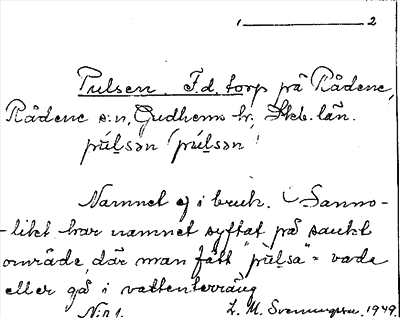 1 2
Pulsen. F.d. torp på Rådene,
Rådene s:n, Gudhems hr, Skb. län.
púl̠sən ( púl̠sən )
Namnet ej i bruk. Sanno-
-likt har namnet syftat på sankt
område, där man fått "pùl̠sa" = vada
eller gå i vattenterräng
1949.